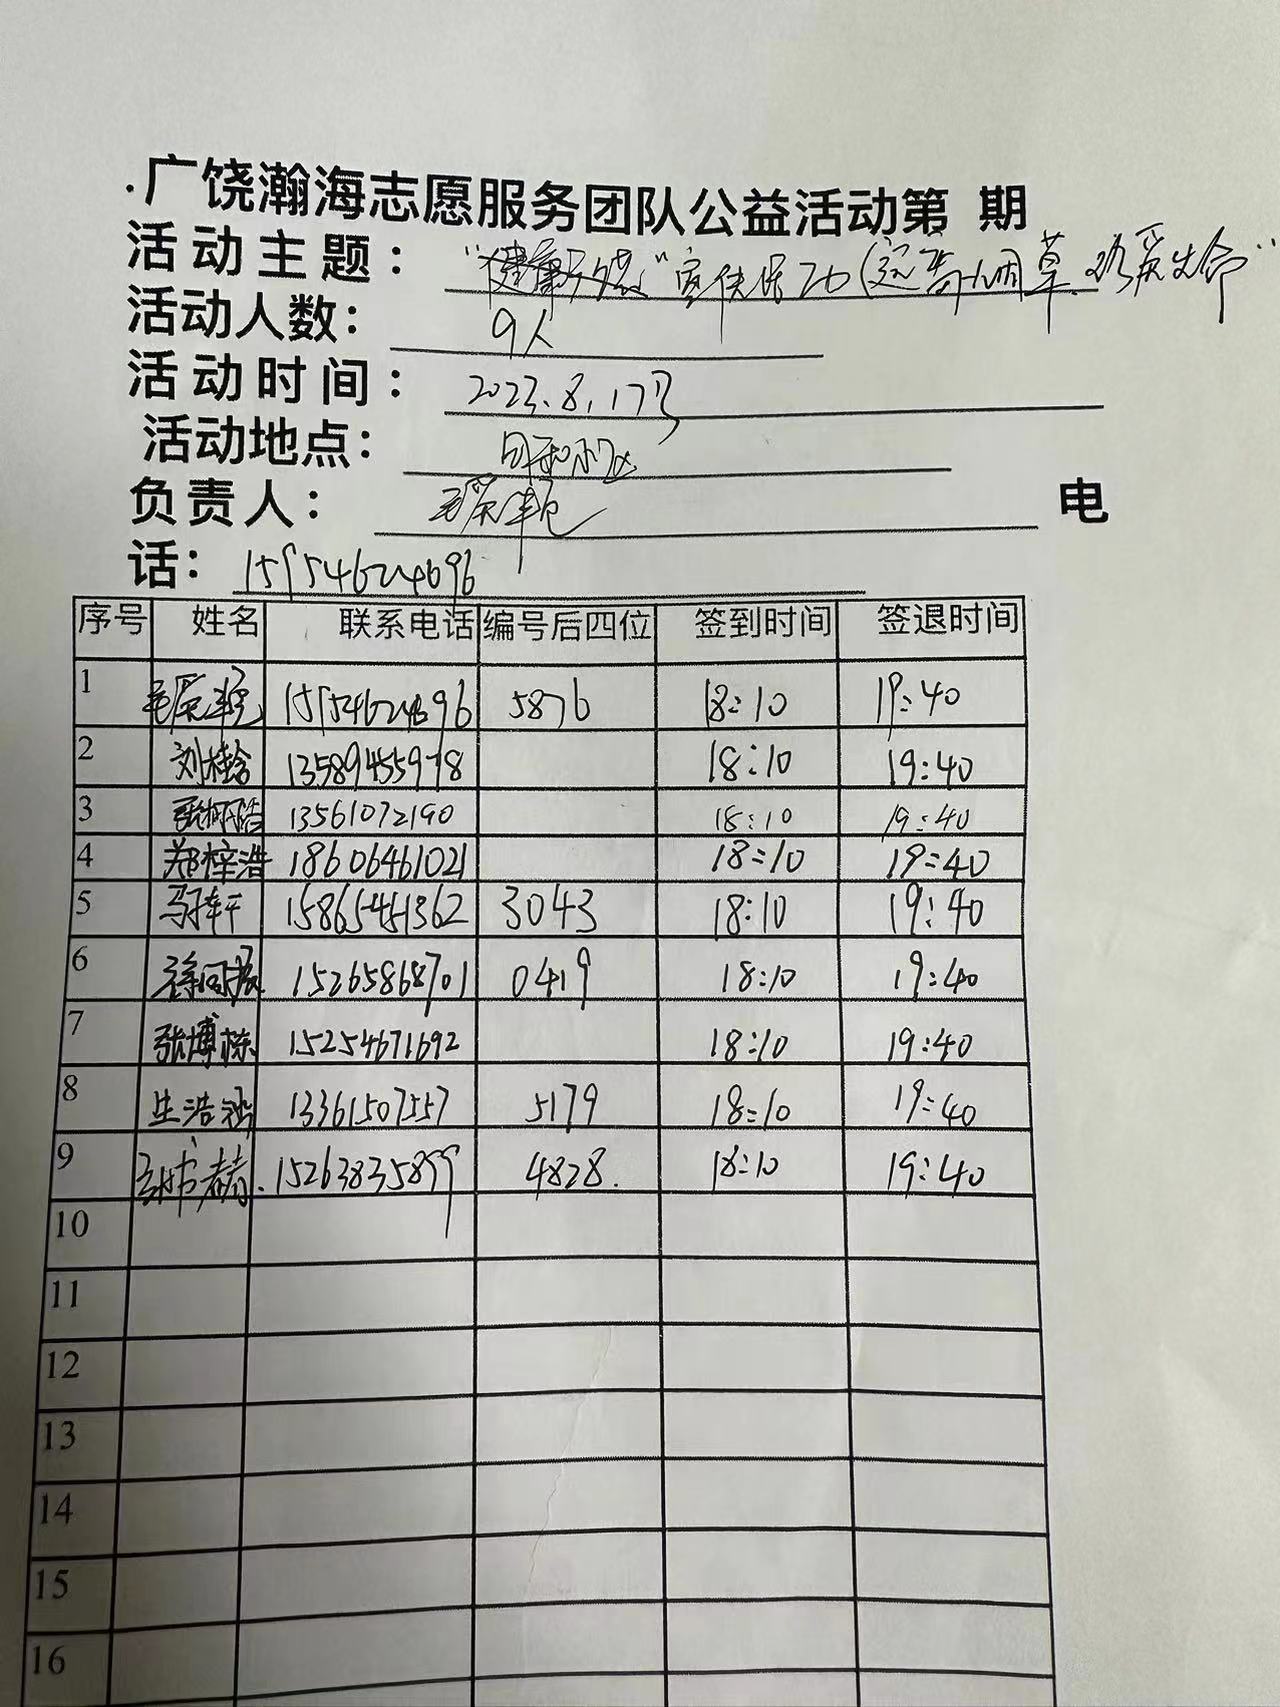 .广饶瀚海志愿服务团队公益活动第 期
活动主题： "健康 "宣传活动(远离烟草.珍爱生命"
活动人数： 9人
活动时间： 2023.8.17号
活动地点：
负责人： 电
话： 15954624696
序号 姓名 联系电话 编号后四位 签到时间 签退时间
1 15954624696 5876 18:10 19:40
2 刘桂含 13589455978 18:10 19:40
3 13561072190 18:10 19:40
4 郑梓浩 18606461021 18:10 19:40
5 15865451362 3043 18:10 19:40
6 15265868701 0419 18:10 19:40
7 张博栋 15254671692 18:10 19:40
8 生浩涵 13361507557 5179 18:10 19:40
9 15263835899 4828. 18:10 19:40
10
11
12
13
14
15
16